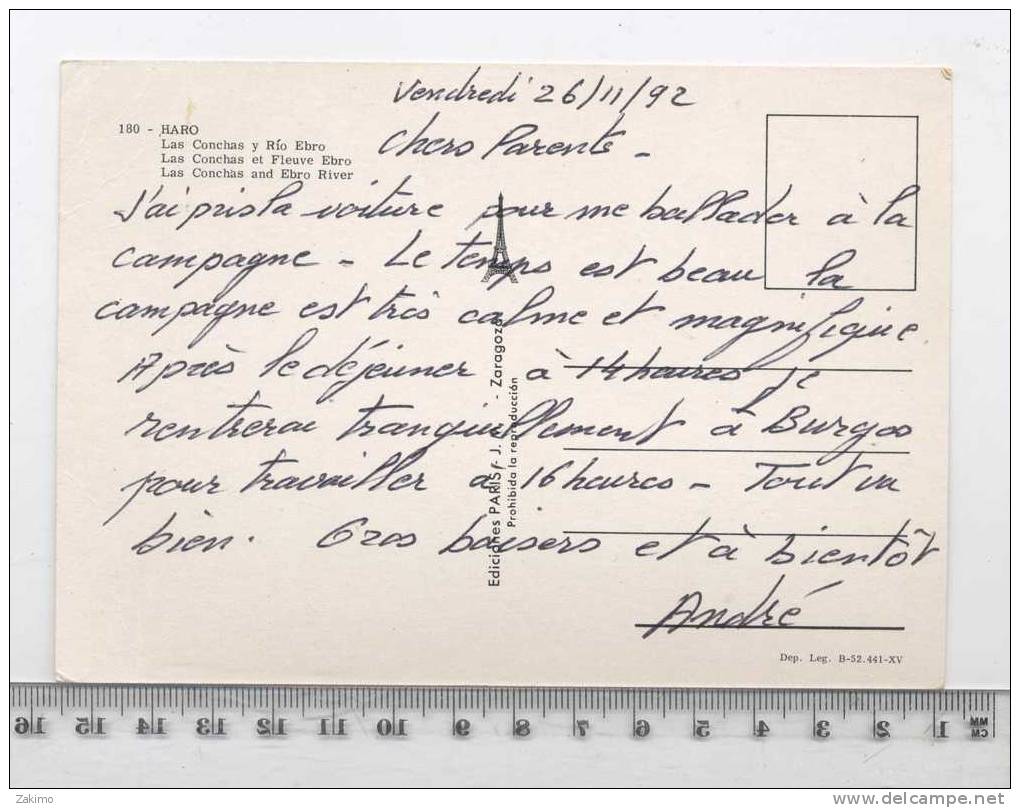 Vendredi 26/11/92
180 - HARO
Las Conchas y Río Ebro
Las Conchas et Fleuve Ebro
Las Conchas and Ebro River
Chers Parents -
J'ai pris la voiture pour me ballader à la
campagne - Le temps est beau la
campagne est très calme et magnifique
Après le déjeuner à 14 heures je
rentrerai tranquillement à Burgos
pour travailler à 16 heures - Tout va
bien. Gros baisers et à bientôt
André
Ediciones PARIS - J. - Zaragoza
Prohibida la reproducción
Dep. Leg. B-52.441-XV
16 15 14 13 12 11 10 9 8 7 6 5 4 3 2 1 MM
CM
Zakimo
www.delcampe.net